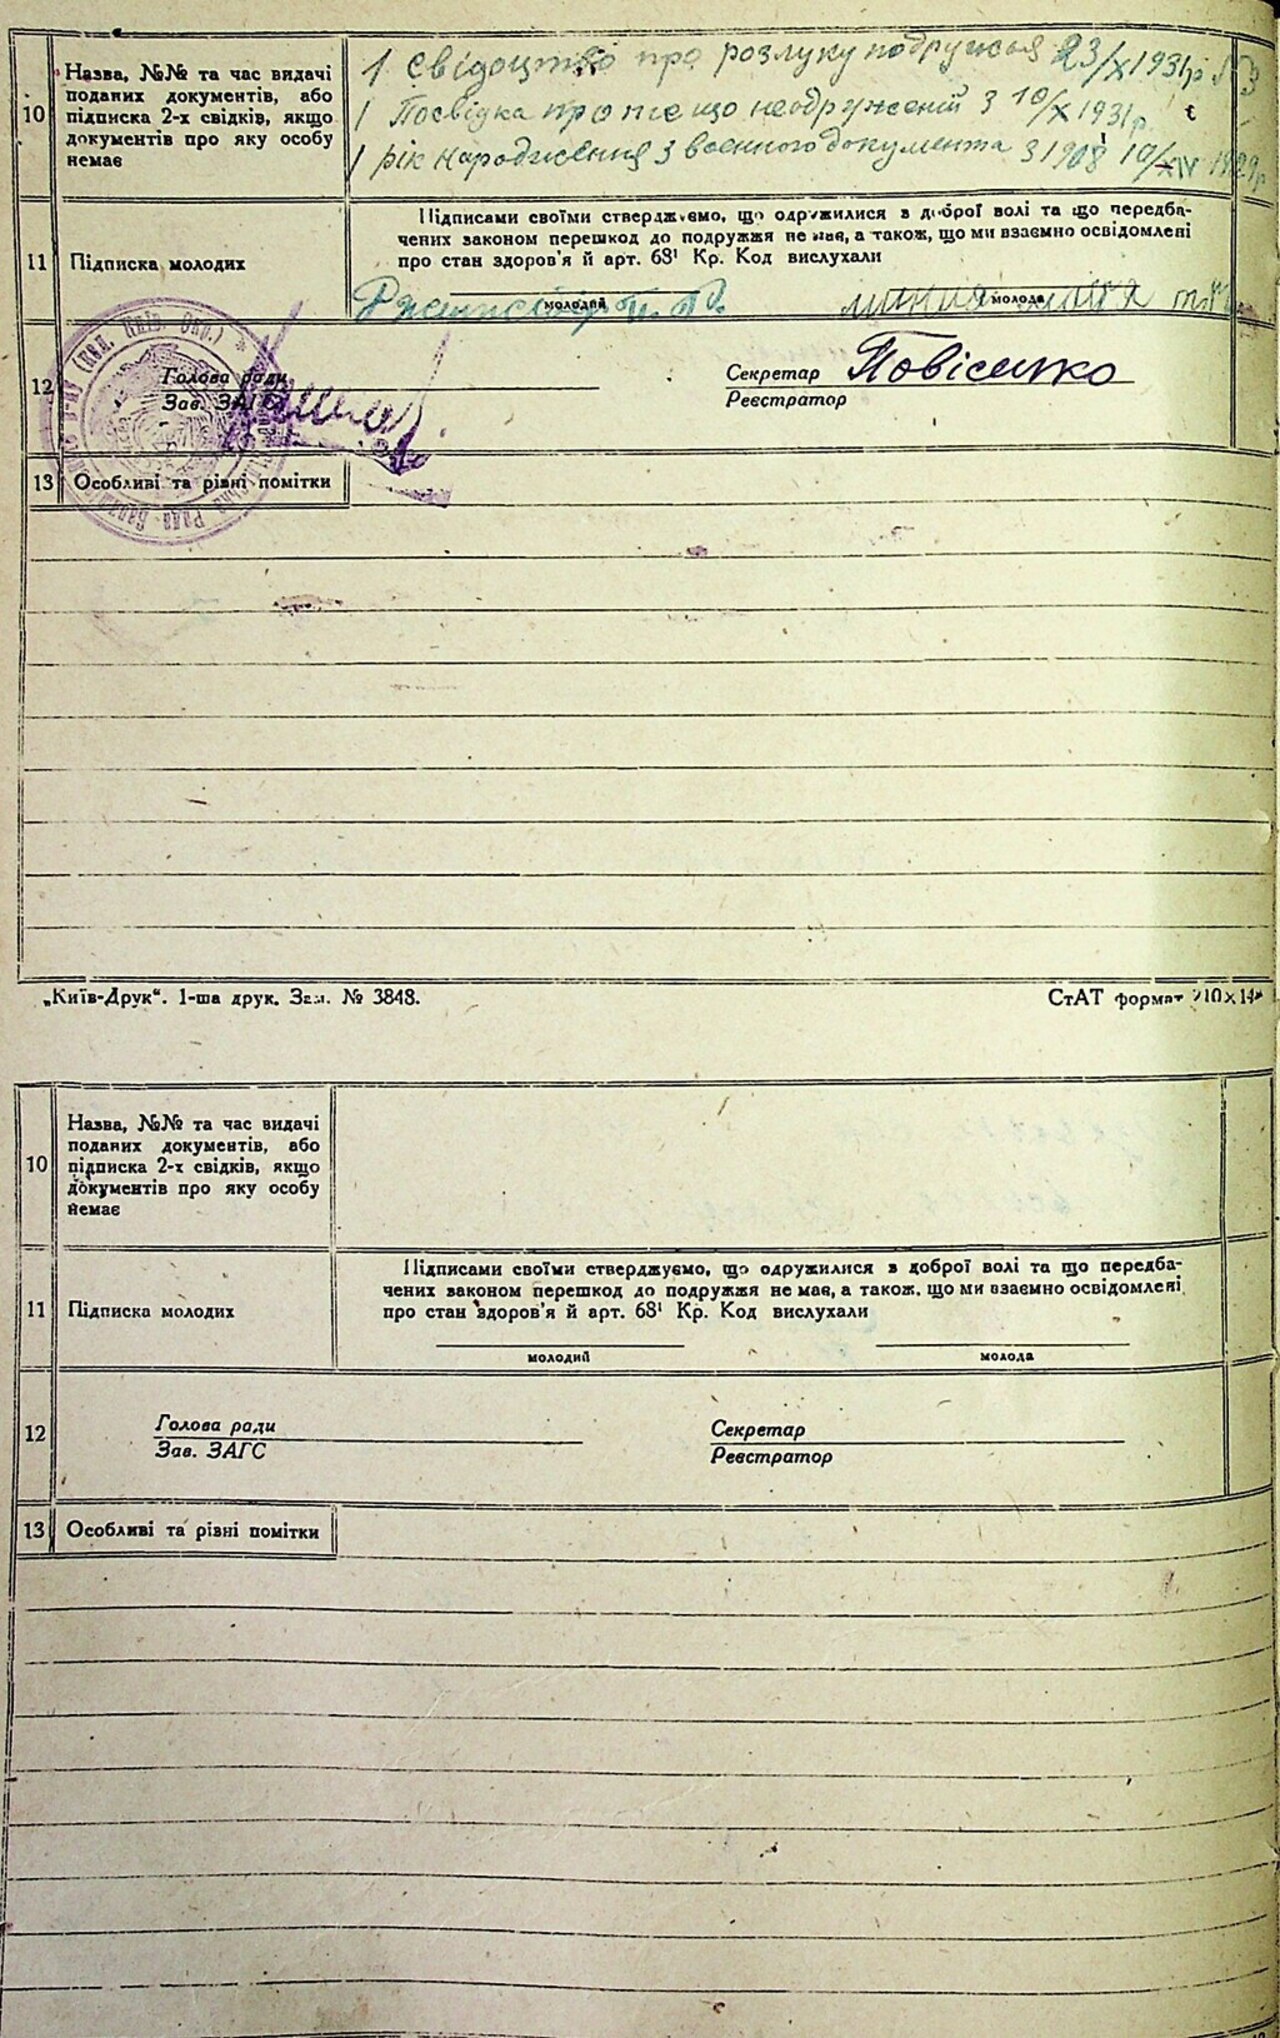 10
Назва, №№ та час видачі
поданих документів, або
підписка 2-х свідків, якщо
документів про яку особу
немає
1 свідоцтво про розлуку подружжя 23/X 1931р
1 Посвідка про те що неодружений з 10/X 1931р.
1 рік народження з военного документа з 1908
11
Підписка молодих
Підписами своїми стверджуємо, що одружилися з доброї волі та що передба-
чених законом перешкод до подружжя не має, а також, що ми взаємно освідомлені
про стан здоров'я й арт. 68¹ Кр. Код вислухали
молодий
молода
12
Голова ради
Зав. ЗАГС
Секретар Повісенко
Реєстратор
13
Особливі та рівні помітки
„Київ-Друк“. 1-ша друк. Зам. № 3848.
СтАТ формат
10
Назва, №№ та час видачі
поданих документів, або
підписка 2-х свідків, якщо
документів про яку особу
немає
11
Підписка молодих
Підписами своїми стверджуємо, що одружилися з доброї волі та що передба-
чених законом перешкод до подружжя не має, а також, що ми взаємно освідомлені
про стан здоров'я й арт. 68¹ Кр. Код вислухали
молодий
молода
12
Голова ради
Зав. ЗАГС
Секретар
Реєстратор
13
Особливі та рівні помітки